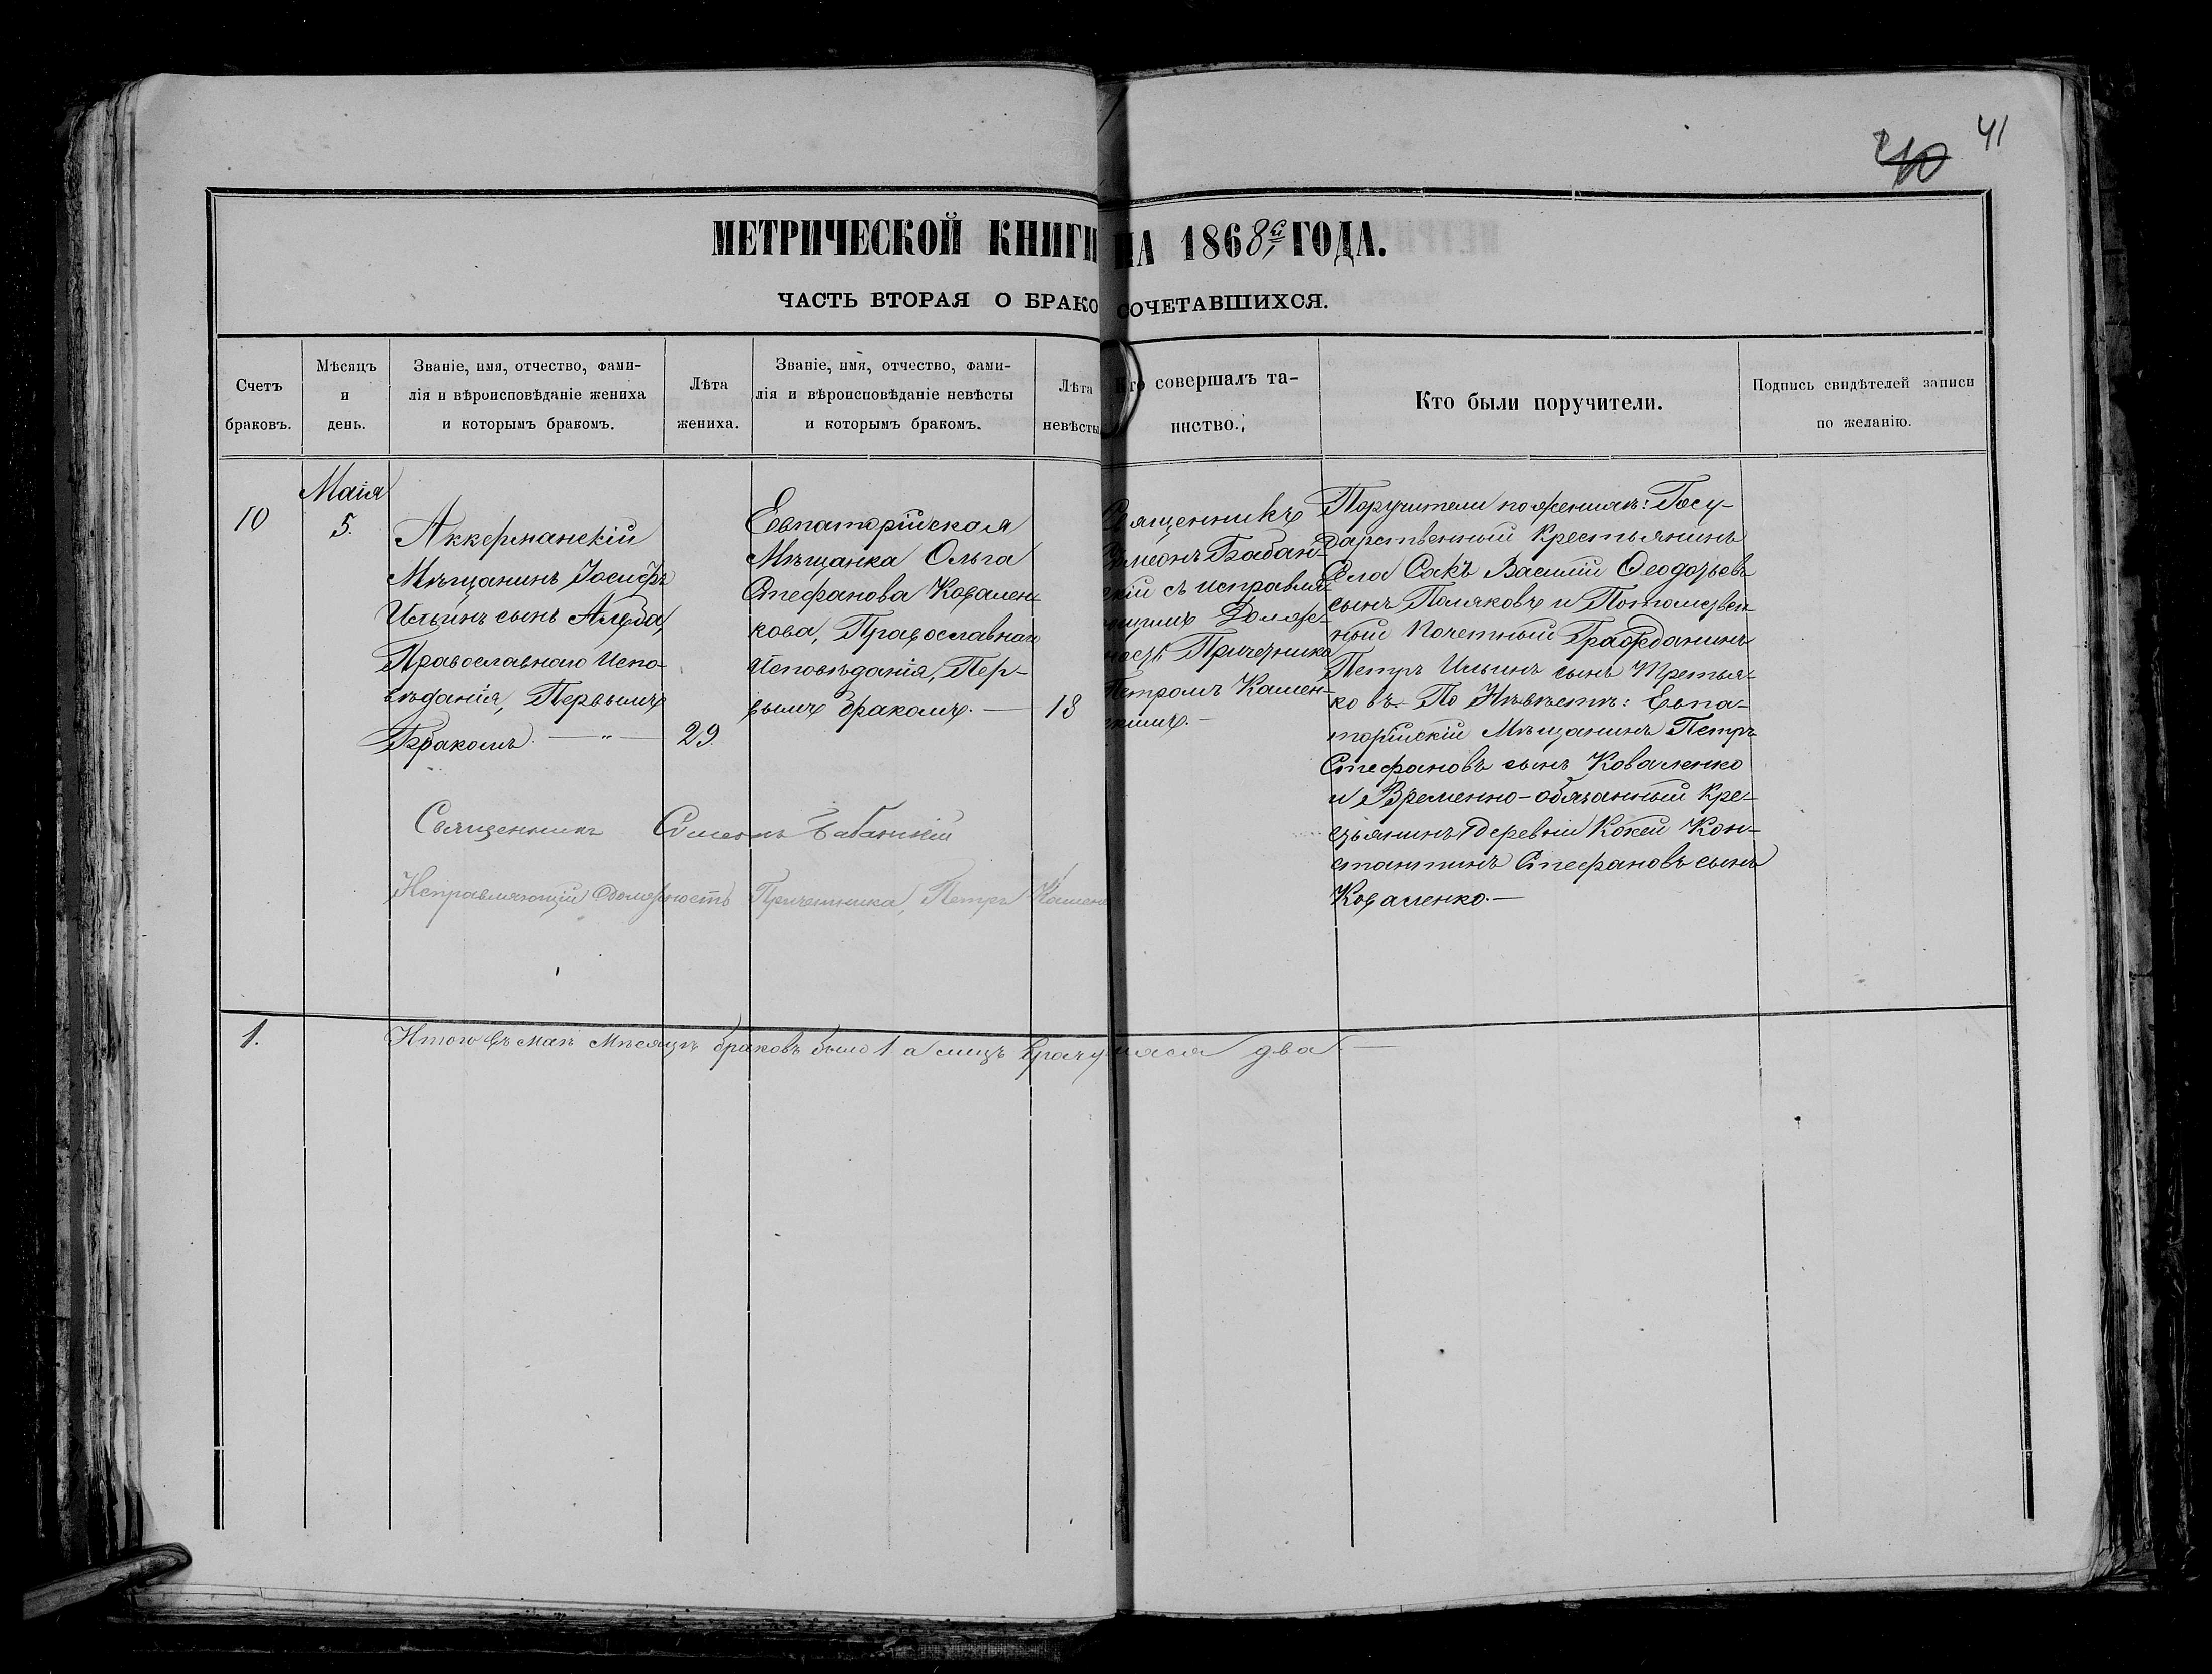 41
МЕТРИЧЕСКОЙ КНИГИ НА 1868 ГОДА.
ЧАСТЬ ВТОРАЯ О БРАКОСОЧЕТАВШИХСЯ.
Счетъ
браковъ.
Мѣсяцъ
и
день.
Званіе, имя, отчество, фами-
лія и вѣроисповѣданіе жениха
и которымъ бракомъ.
Лѣта
жениха.
Званіе, имя, отчество, фами-
лія и вѣроисповѣданіе невѣсты
и которымъ бракомъ.
Лѣта
невѣсты
Кто совершалъ та-
инство.
Кто были поручители.
Подпись свидѣтелей записи
по желанію.
10
Маія
5.
Аккерманскій
Мѣщанинъ Іосифъ
Ильинъ сынъ
Православнаго Испо-
вѣданія, Первымъ
Бракомъ. — „ —
29.
Евпаторійская
Мѣщанка Ольга
Стефанова Ковален-
кова, Православнаго
Исповѣданія, Пер-
вымъ бракомъ. —
18
Священникъ
Симеонъ Бабан-
скій съ исправля-
ющимъ Долж-
ность Причетника
Петромъ Камен-
скимъ. —
Поручители по женихѣ: Госу-
дарственный Крестьянинъ
Села Сакъ Василій Ѳеодотьевъ
сынъ Поляковъ и Потомствен-
ный Почетный Гражданинъ
Петръ Ильинъ сынъ Третья-
ковъ. По Невѣстѣ: Евпа-
торійскій Мѣщанинъ Петръ
Стефановъ сынъ Коваленко
и Временно-обязанный Кре-
стьянинъ деревни Кон-
стантинъ Стефановъ сынъ
Коваленко. —
Священникъ Симеонъ Бабанскій
Исправляющій должность Причетника, Петръ Камен
1.
Итого въ маѣ мѣсяцѣ браковъ было 1 а лицъ два. —